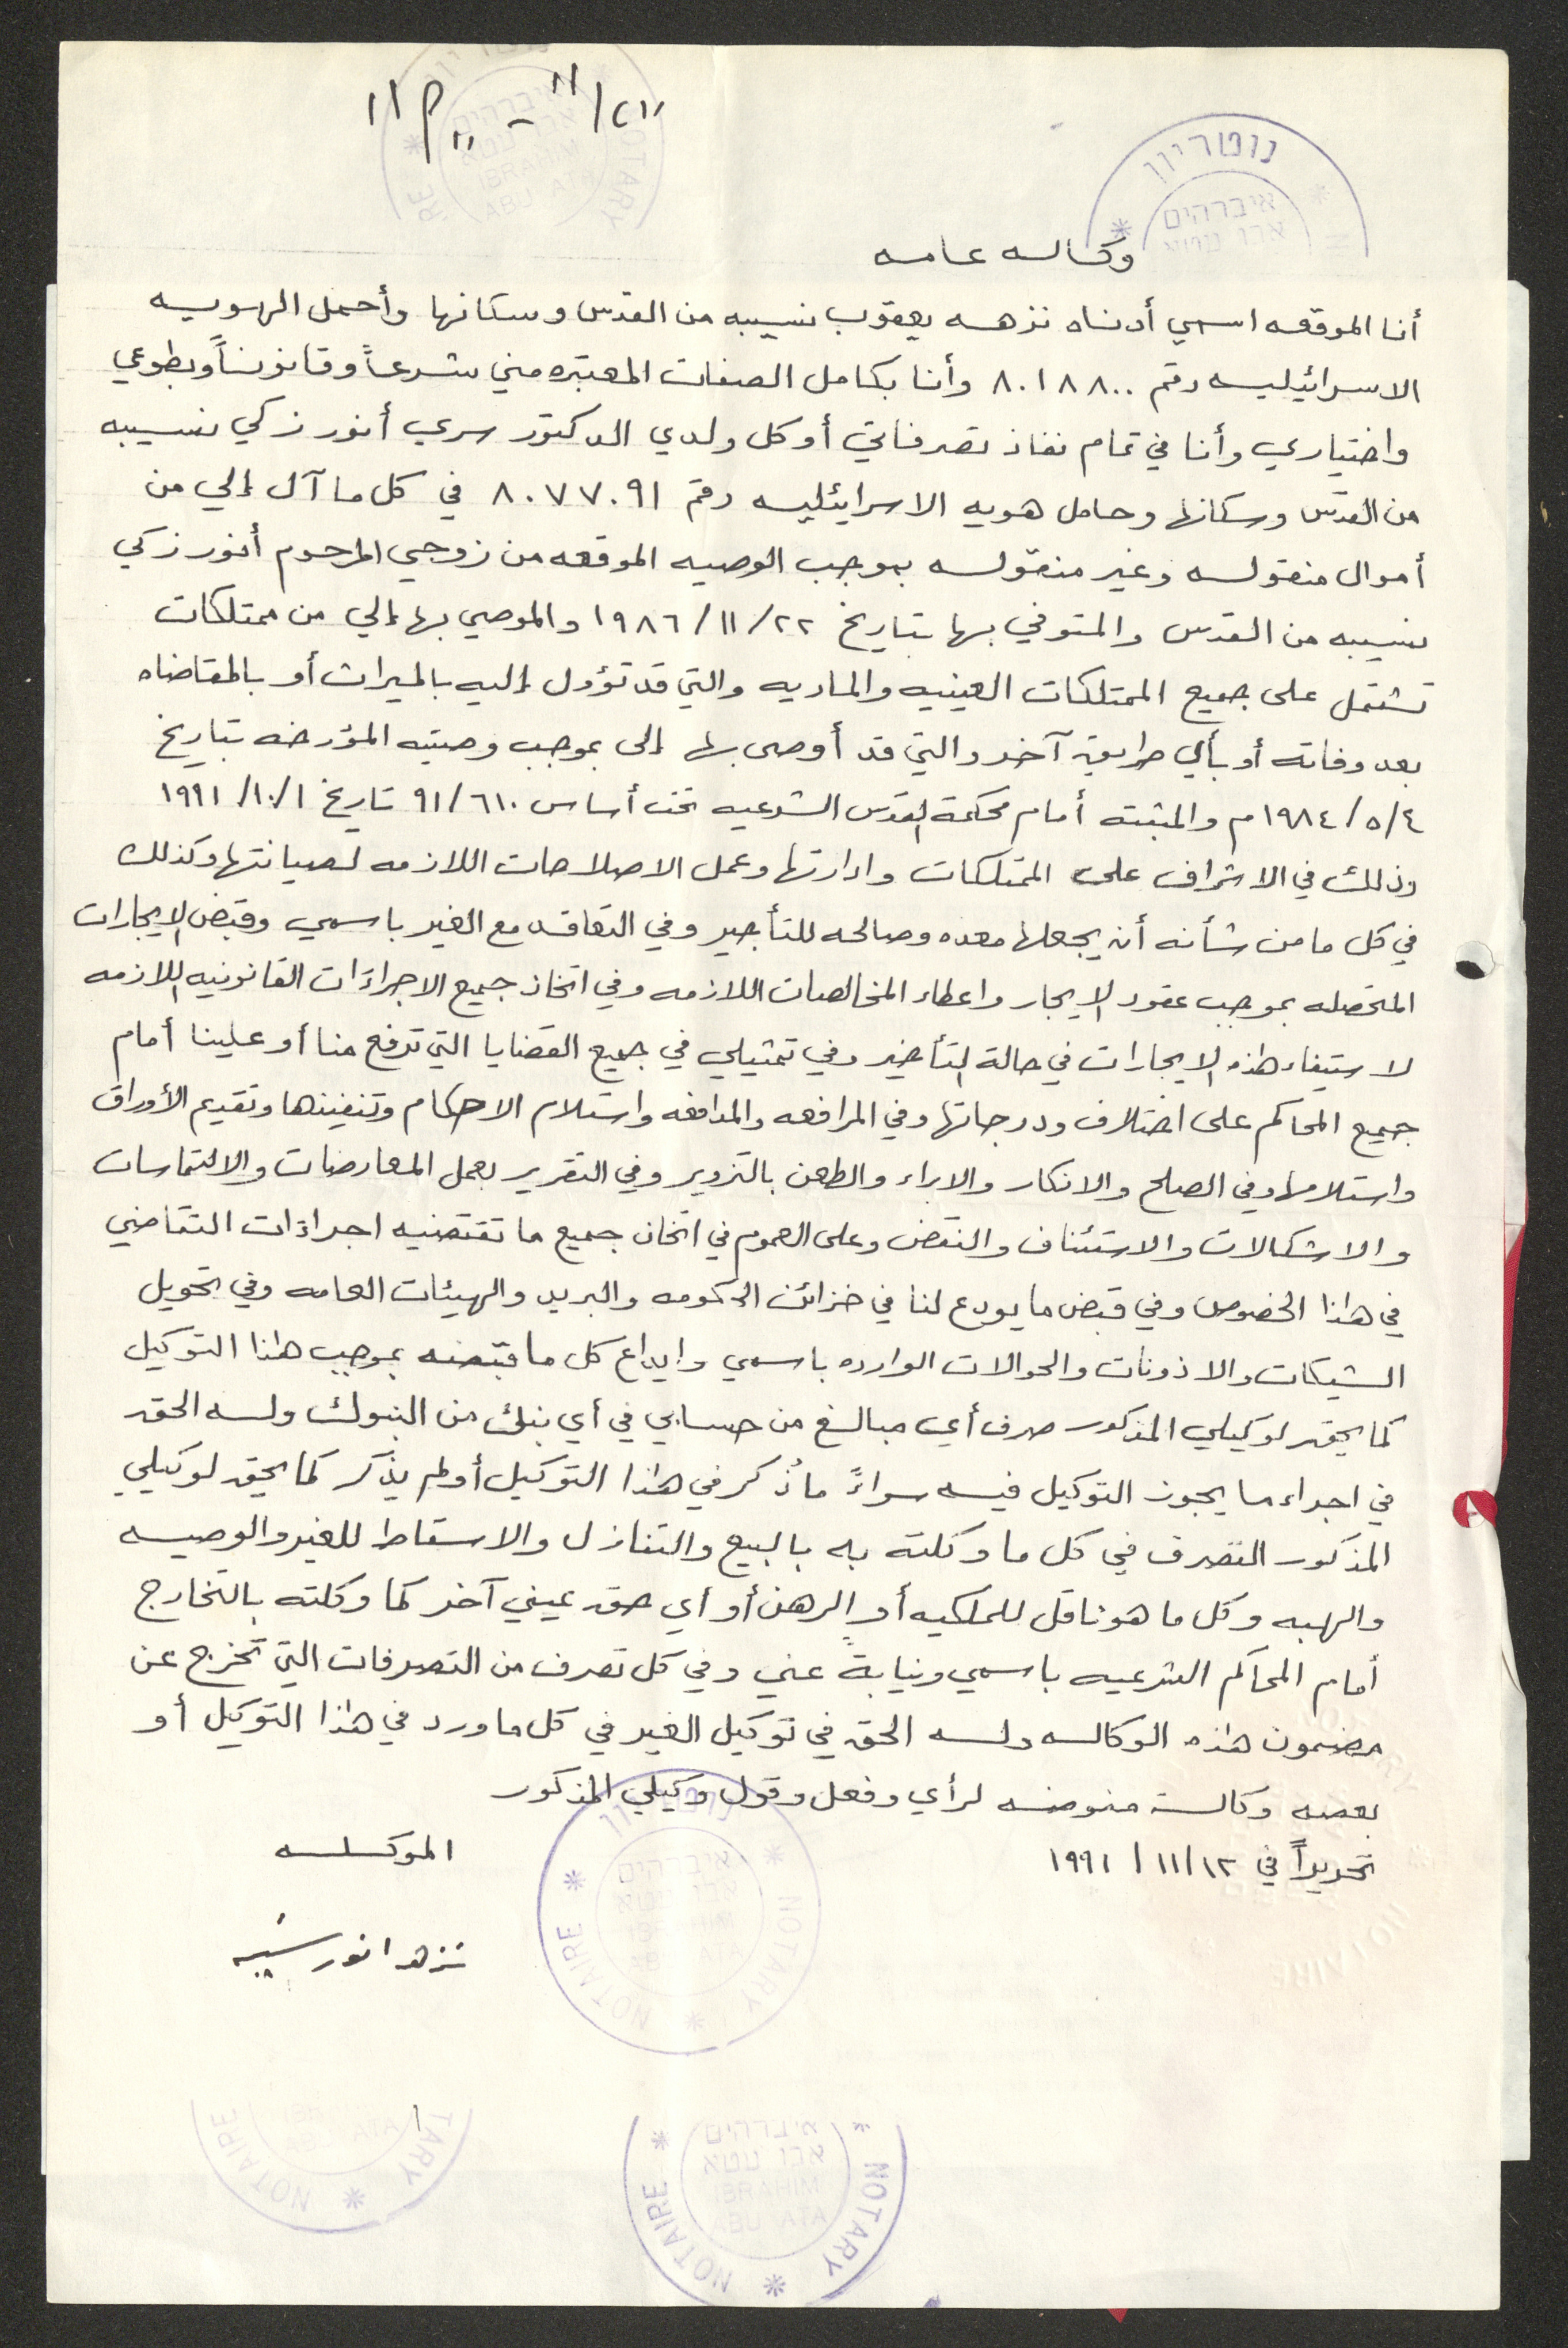 נוטריון
איברהים
אבו עטא
وكاله عامه
أنا الموقعه اسمي أدناه نزهه يعقوب نسيبه من القدس وسكانها وأحمل الهويه
الاسرائيليه رقم ٨٠١٨٨٠٠ وأنا بكامل الصفات المعتبره مني شرعاً وقانوناً وبطوعي
واختياري وأنا في تمام نفاذ تصرفاتي أوكل ولدي الدكتور سري أنور زكي نسيبه
من القدس وسكانها وحامل هويه الاسرائيليه رقم ٨٠٧٧٠٩١ في كل ما آل إلي من
أموال منقوله وغير منقوله بموجب الوصيه الموقعه من زوجي المرحوم أنور زكي
نسيبه من القدس والمتوفي بها بتاريخ ٢٢/١١/١٩٨٦ والموصي بها إلي من ممتلكات
تشتمل على جميع الممتلكات العينيه والماديه والتي قد تؤول إليه بالميراث أو بالمقاضاه
بعد وفاته أو بأي طريق آخر والتي قد أوصى بها إلى بموجب وصيته المؤرخه بتاريخ
٤/٥/١٩٨٤م والمثبته أمام محكمة القدس الشرعيه تحت أساس ٩١/٦١٠ تاريخ ١/١٠/١٩٩١
وذلك في الاشراف على الممتلكات وادارتها وعمل الاصلاحات اللازمه لصيانتها وكذلك
في كل ما من شأنه أن يجعلها معده وصالحه للتأجير وفي التعاقد مع الغير باسمي وقبض الايجارات
المتحصله بموجب عقود الايجار واعطاء المخالصات اللازمه وفي اتخاذ جميع الاجراءات القانونيه اللازمه
لاستيفاء هذه الايجارات في حالة التأخير وفي تمثيلي في جميع القضايا التي ترفع منا أو علينا أمام
جميع المحاكم على اختلاف ودرجاتها وفي المرافعه والمدافعه واستلام الاحكام وتنفيذها وتقديم الأوراق
واستلامها وفي الصلح والانكار والابراء والطعن بالتزوير وفي التقرير بعمل المعارضات والالتماسات
والاشكالات والاستئناف والنقض وعلى العموم في اتخاذ جميع ما تقتضيه اجراءات التقاضي
في هذا الخصوص وفي قبض ما يودع لنا في خزائن الحكومه والبريد والهيئات العامه وفي تحويل
الشيكات والاذونات والحوالات الوارده باسمي وايداع كل ما قبضه بموجب هذا التوكيل
كما يحق لوكيلي المذكور صرف أي مبالغ من حسابي في أي بنك من البنوك وله الحق
في اجراء ما يجوز التوكيل فيه سواءً ما ذُكر في هذا التوكيل أو لم يذكر كما يحق لوكيلي
المذكور التصرف في كل ما وكلته به بالبيع والتنازل والاسقاط للغير والوصيه
والهبه وكل ما هو ناقل للملكيه أو الرهن أو أي حق عيني آخر كما وكلته بالتخارج
أمام المحاكم الشرعيه باسمي ونيابةً عني وفي كل تصرف من التصرفات التي تخرج عن
مضمون هذه الوكاله وله الحق في توكيل الغير في كل ما ورد في هذا التوكيل أو
بعضه وكالة مفوضه لرأي وفعل وقول وكيلي المذكور
تحريراً في ١٢/١١/١٩٩١
الموكله
نزهه انور نسيبه
NOTARY * NOTAIRE *
איברהים
אבו עטא
IBRAHIM
ABU ATA